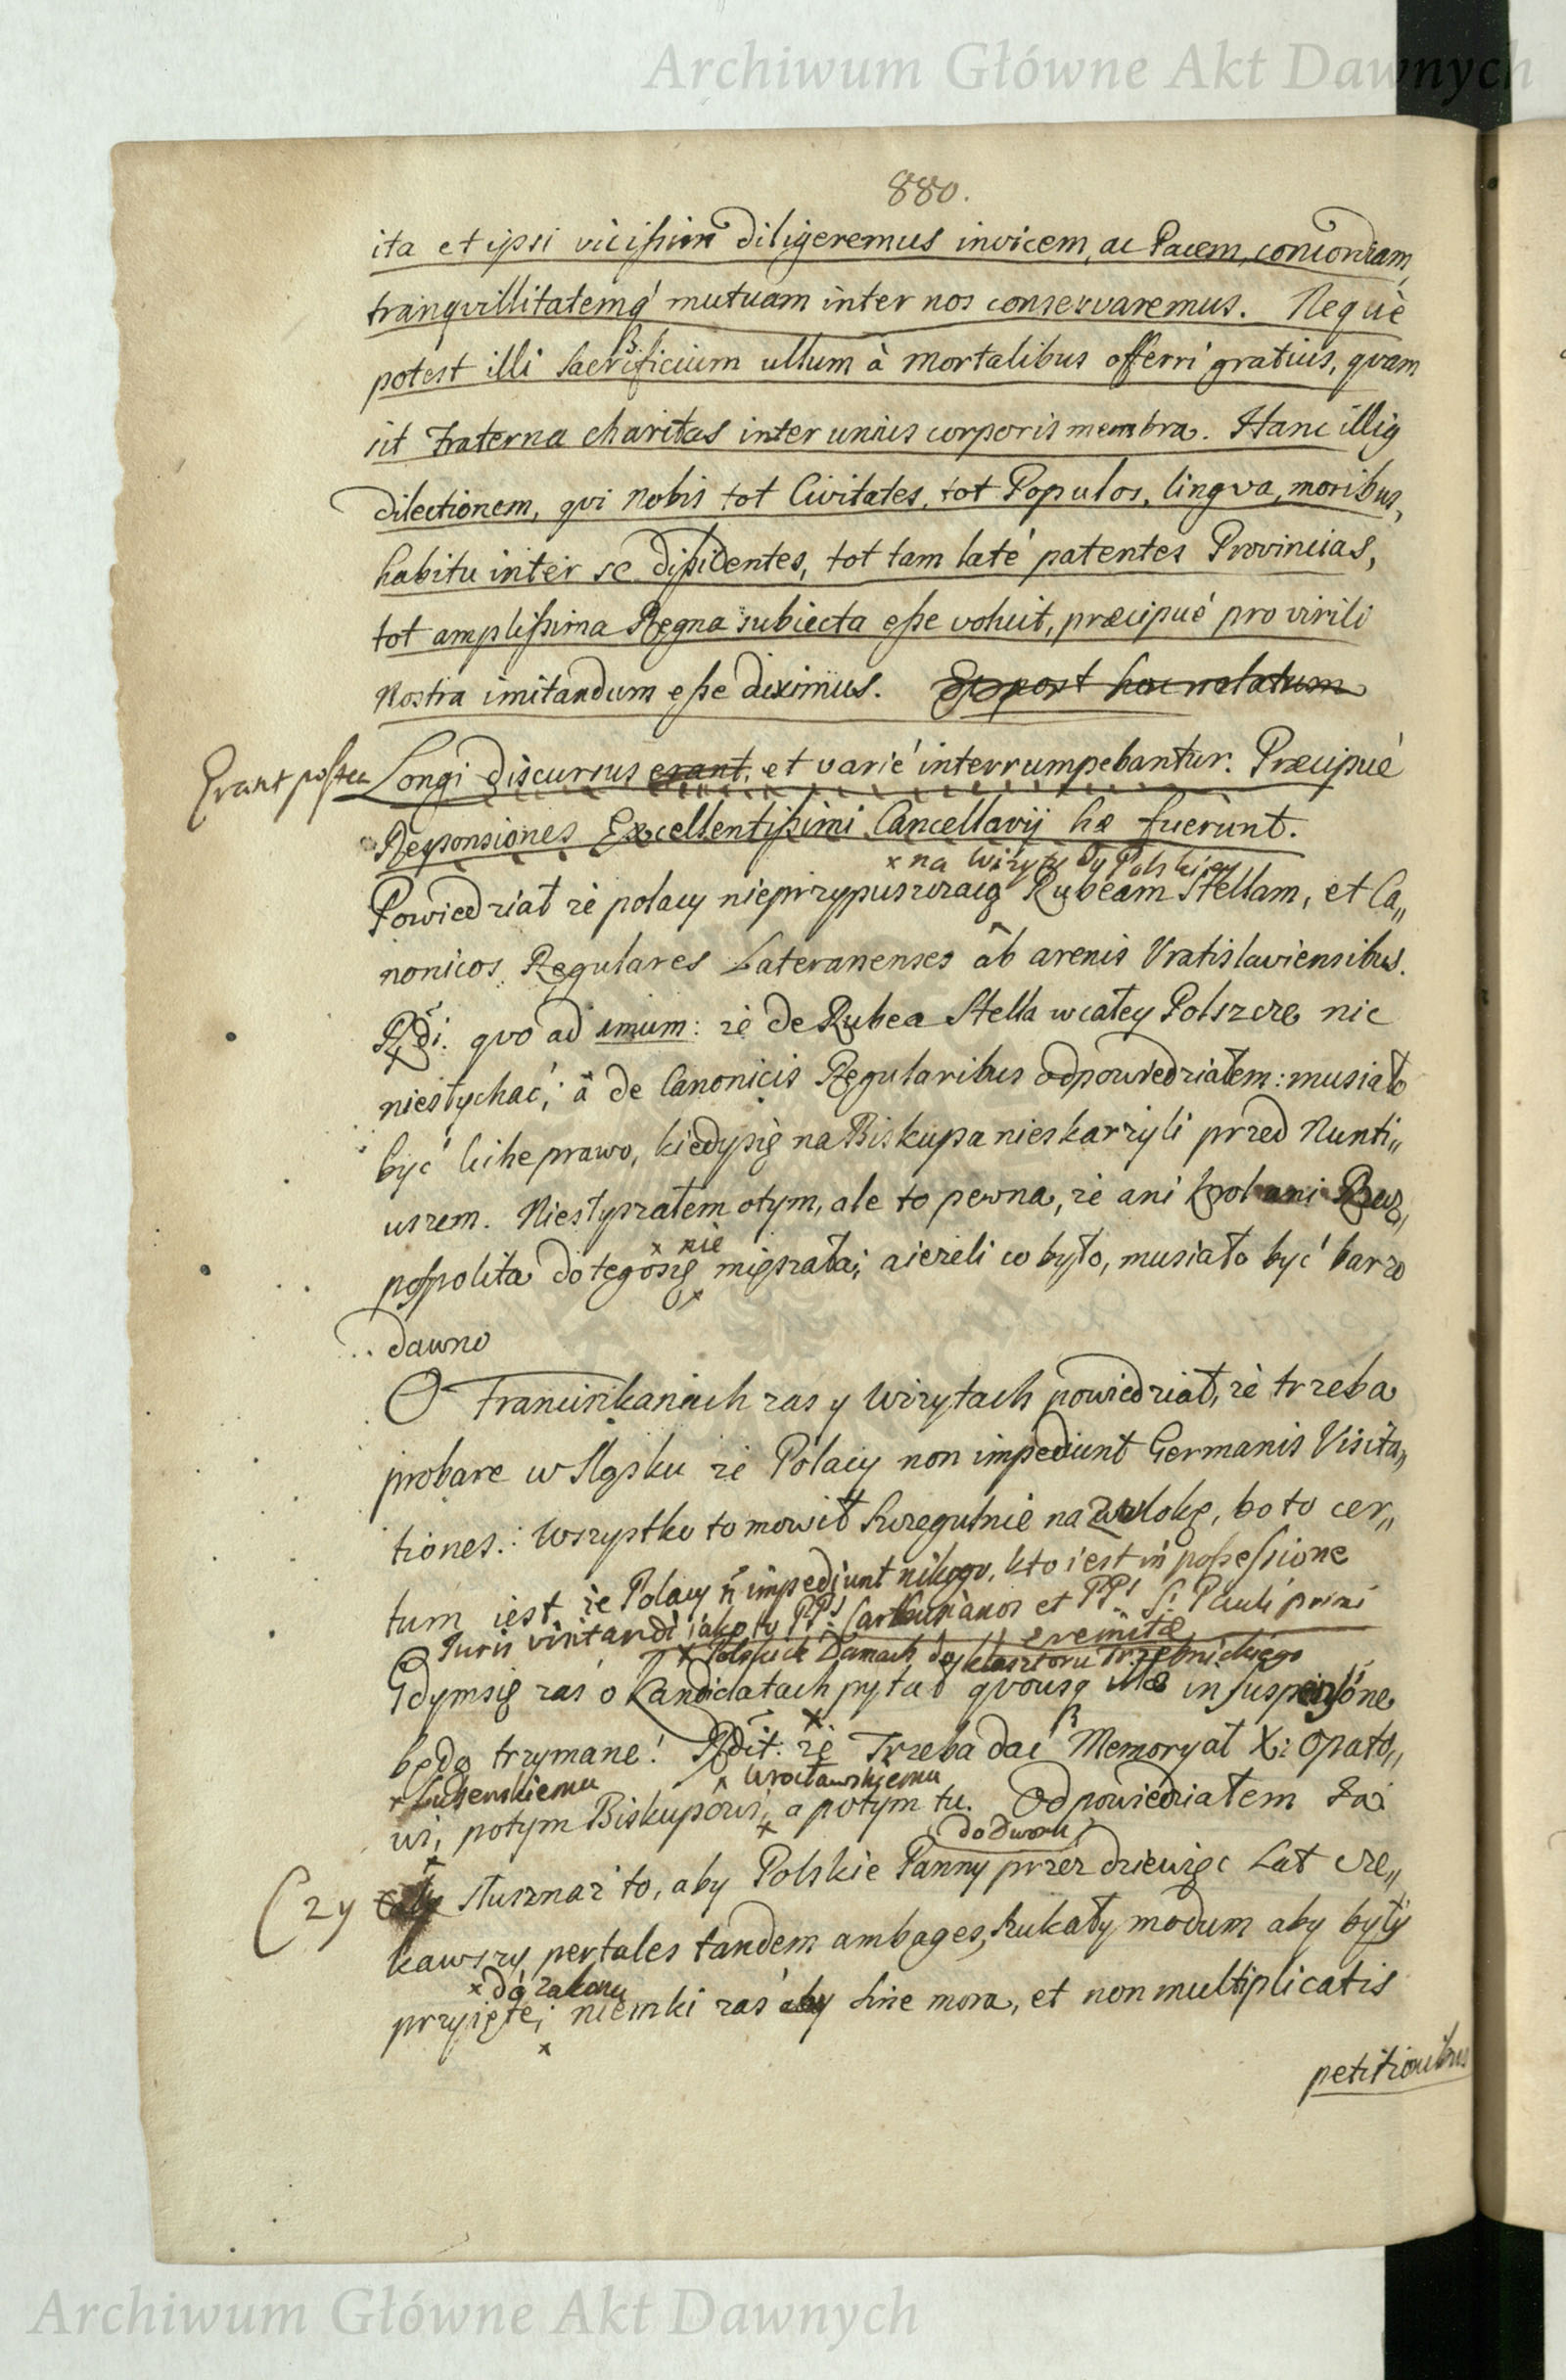 Archiwum Główne Akt Dawnych
880.
ita et ipsi vicißim diligeremus invicem, ac Pacem, concordiam,
tranqvillitatemq́ mutuam inter nos conservaremus. Neque
potest illi sacrificium ullum à mortalibus offerri gratius, qvam
sit Fraterna charitas inter unius corporis membra. Hanc illig
dilectionem, qvi Nobis tot Civitates, tot Populos, lingva, moribus,
habitu inter se dißidentes, tot tam laté patentes Provincias,
tot amplißima Regna subiecta eße voluit, præcipué pro virili
Nostra imitandum eße diximus. Et post hoc relatum
Erant postea Longi discursus erant, et varié interrumpebantur. Præcipué
Responsiones Excellentißimi Cancellarij hæ fuerunt.
x na Wizyty Dy Polskiey
Powiedział że polacy nieprzypuszczaią Rubeam Stellam, et Ca,,
nonicos Regulares Lateranenses ab arenis Vratislaviensibus.
Rdi. qvo ad imum: że de Rubea Stella w całey Polszcze nic
niesłychać; á de Canonicis Regularibus odpowiedziałem: musiało
być liche prawo, kiedysię na Biskupa nieskarżyli przed Nunti,,
uszem. Niesłyszałem otym, ale to pewna, że ani Krol ani Rzecz,,
x nie
pospolita do tego się mięszała; a ieżeli co było, musiało być barzo
dawno
O Franciszkanach zas y Wizytach powiedział, że trzeba
probare w Sląsku że Polacy non impediunt Germanis Visita,,
tiones.: Wszystko to mowił szczegulnie na zwlokę, bo to cer,,
tum iest, że Polacy ñ impediunt nikogo, kto iest in poßeßione
Juris visitandi iako ty PP: Carthusianos et PP: S: Pauli primi
eremitæ
x Polskich Damach do klasztoru Trzebnickiego
Gdymsię zaś o Kandidatach pytał qvousq illæ in suspensione
będą trzymane! Rdit: że Trzeba dać Memoryał X: Opato,,
x Lubenskiemu x Wrocławskiemu
wi, potym Biskupowi, a potym tu. Odpowiedziałem Za
do Dworu
Czy słusznaż to, aby Polskie Panny przez dziewięc Lat cze,,
kawszy per tales tandem ambages, szukały modum aby były
x do zakonu
przyięte; niemki zaś aby sine mora, et non multiplicatis
petitionibus
Archiwum Główne Akt Dawnych